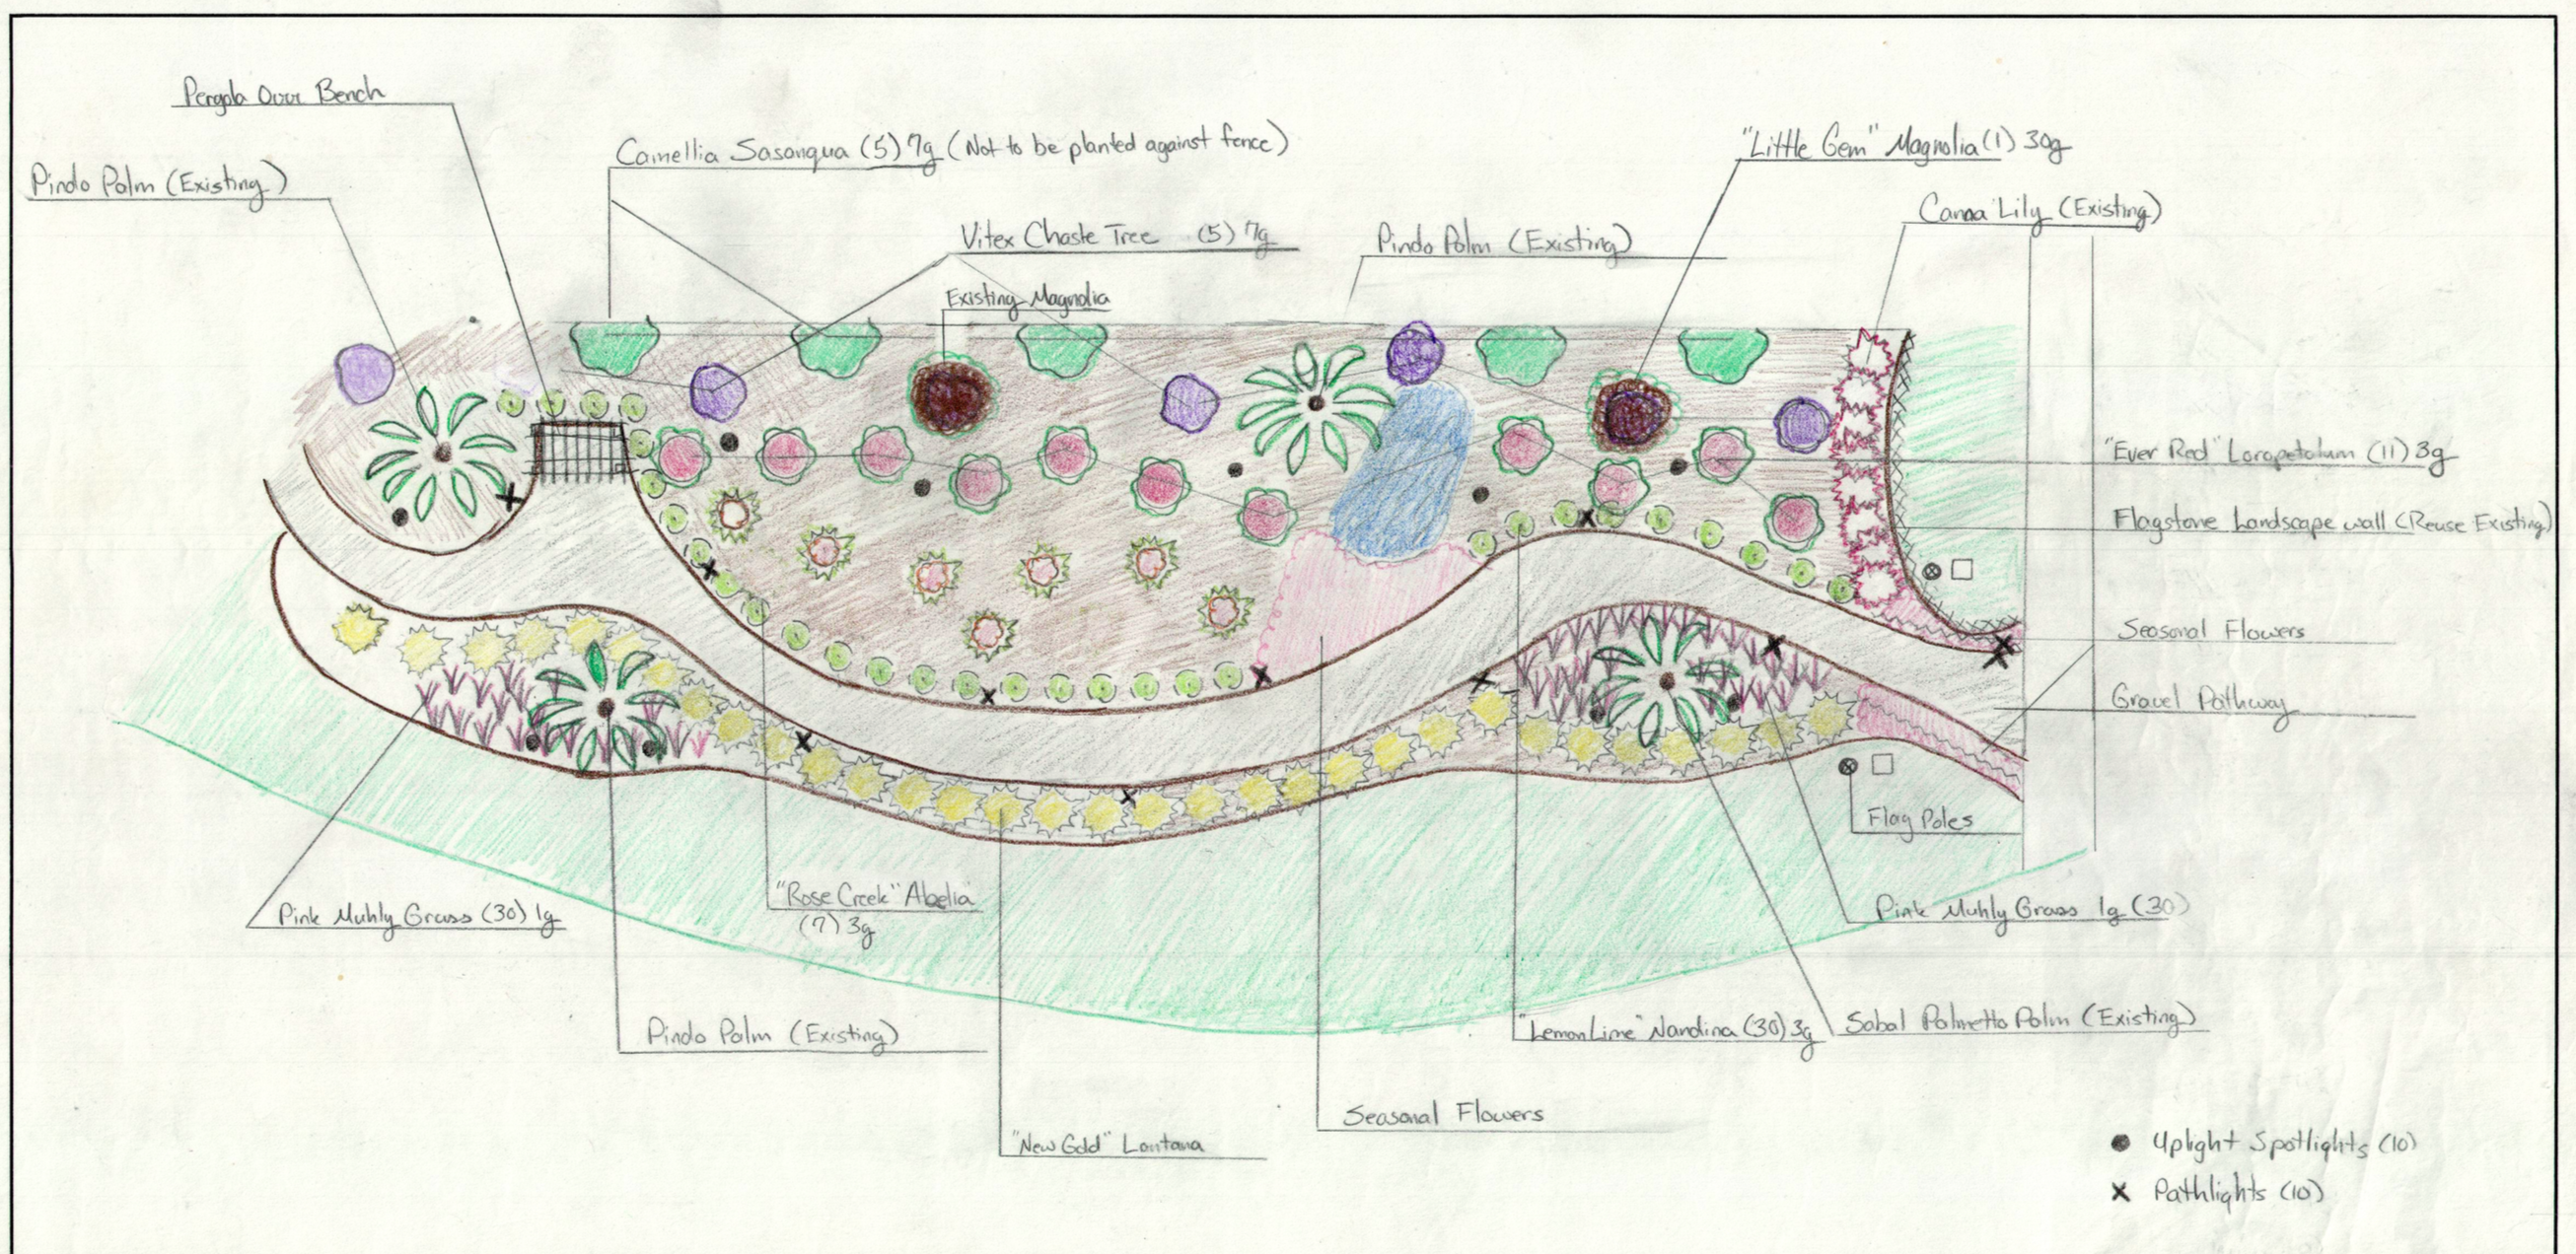 Pergola Over Bench
Pindo Palm (Existing)
Camellia Sasanqua (5) 7g (Not to be planted against fence)
Vitex Chaste Tree (5) 7g
Existing Magnolia
Pindo Palm (Existing)
"Little Gem" Magnolia (1) 30g
Canna Lily (Existing)
"Ever Red" Loropetalum (11) 3g
Flagstone Landscape wall (Reuse Existing)
Seasonal Flowers
Gravel Pathway
Flag Poles
Pink Muhly Grass (30) 1g
"Rose Creek" Abelia
(7) 3g
Pink Muhly Grass 1g (30)
Pindo Palm (Existing)
"Lemon Lime" Nandina (30) 3g
Sabal Palmetto Palm (Existing)
Seasonal Flowers
"New Gold" Lantana
Uplight Spotlights (10)
Pathlights (10)